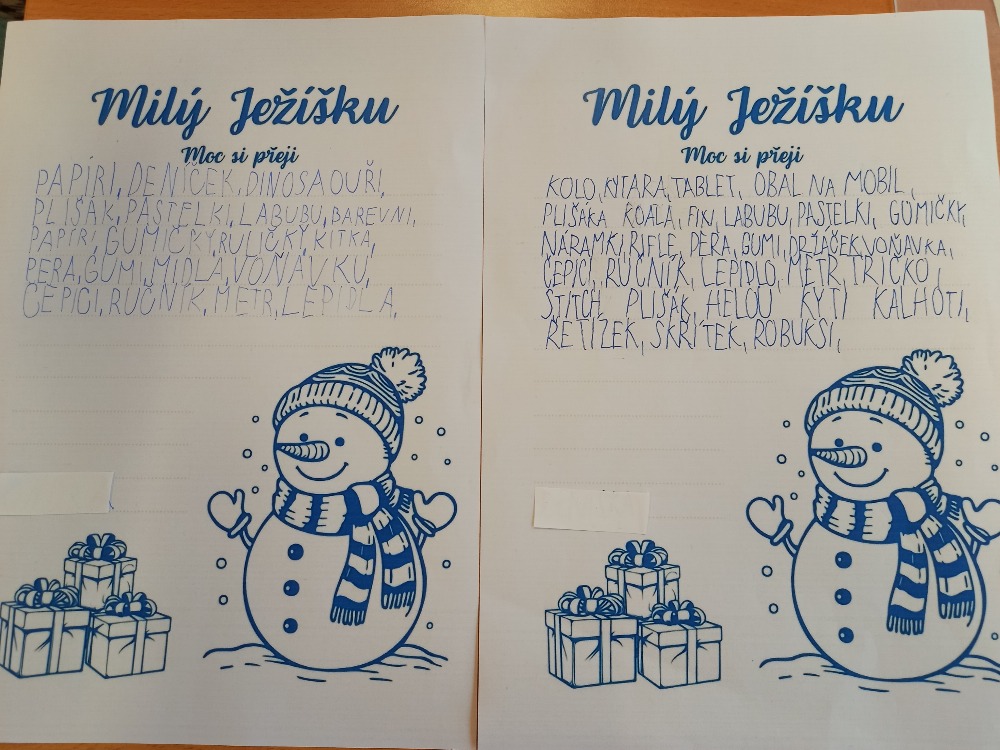 Milý Ježíšku
Moc si přeji
PAPÍRI, DENÍČEK, DINOSAOUŘI,
PLIŠÁK, PASTELKI, LABUBU, BAREVNI,
PAPÍRI, GUMIČKY, RULIČKY, KITKA,
PERA, GUMI, MIDLA, VOŇAVKU,
ČEPICI, RUČNÍK, METR, LEPIDLA,
Milý Ježíšku
Moc si přeji
KOLO, KYTARA, TABLET, OBAL NA MOBIL,
PLIŠÁKA KOALA, FIXI, LABUBU, PASTELKI, GUMIČKY,
NÁRAMKI, RIFLE, PERA, GUMI, DRŽÁČEK, VOŇAVKA,
ČEPICI, RUČNÍK, LEPIDLO, METR, TRIČKO,
ŠTITCH PLIŠÁK, HELOU KYTI KALHOTI,
ŘETÍZEK, SKŘÍTEK, ROBUKSI,